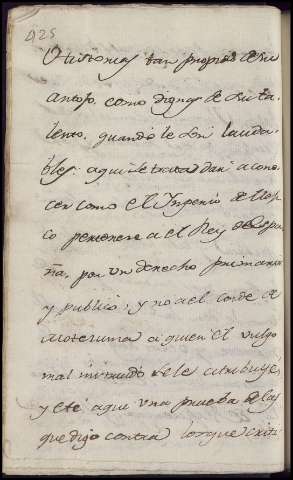 425
tan propias de su
como dignos de su ta-
lento, quando le son lauda-
bles: aqui se trata dar a cono-
cer como el Ingenio de
co pertenece a el Rey de Espa-
ña, por un derecho primario
y publico, y no al conde de
a quien el vulgo
mal le atribuye,
y este aqui una prueba de las
que digo contra los que